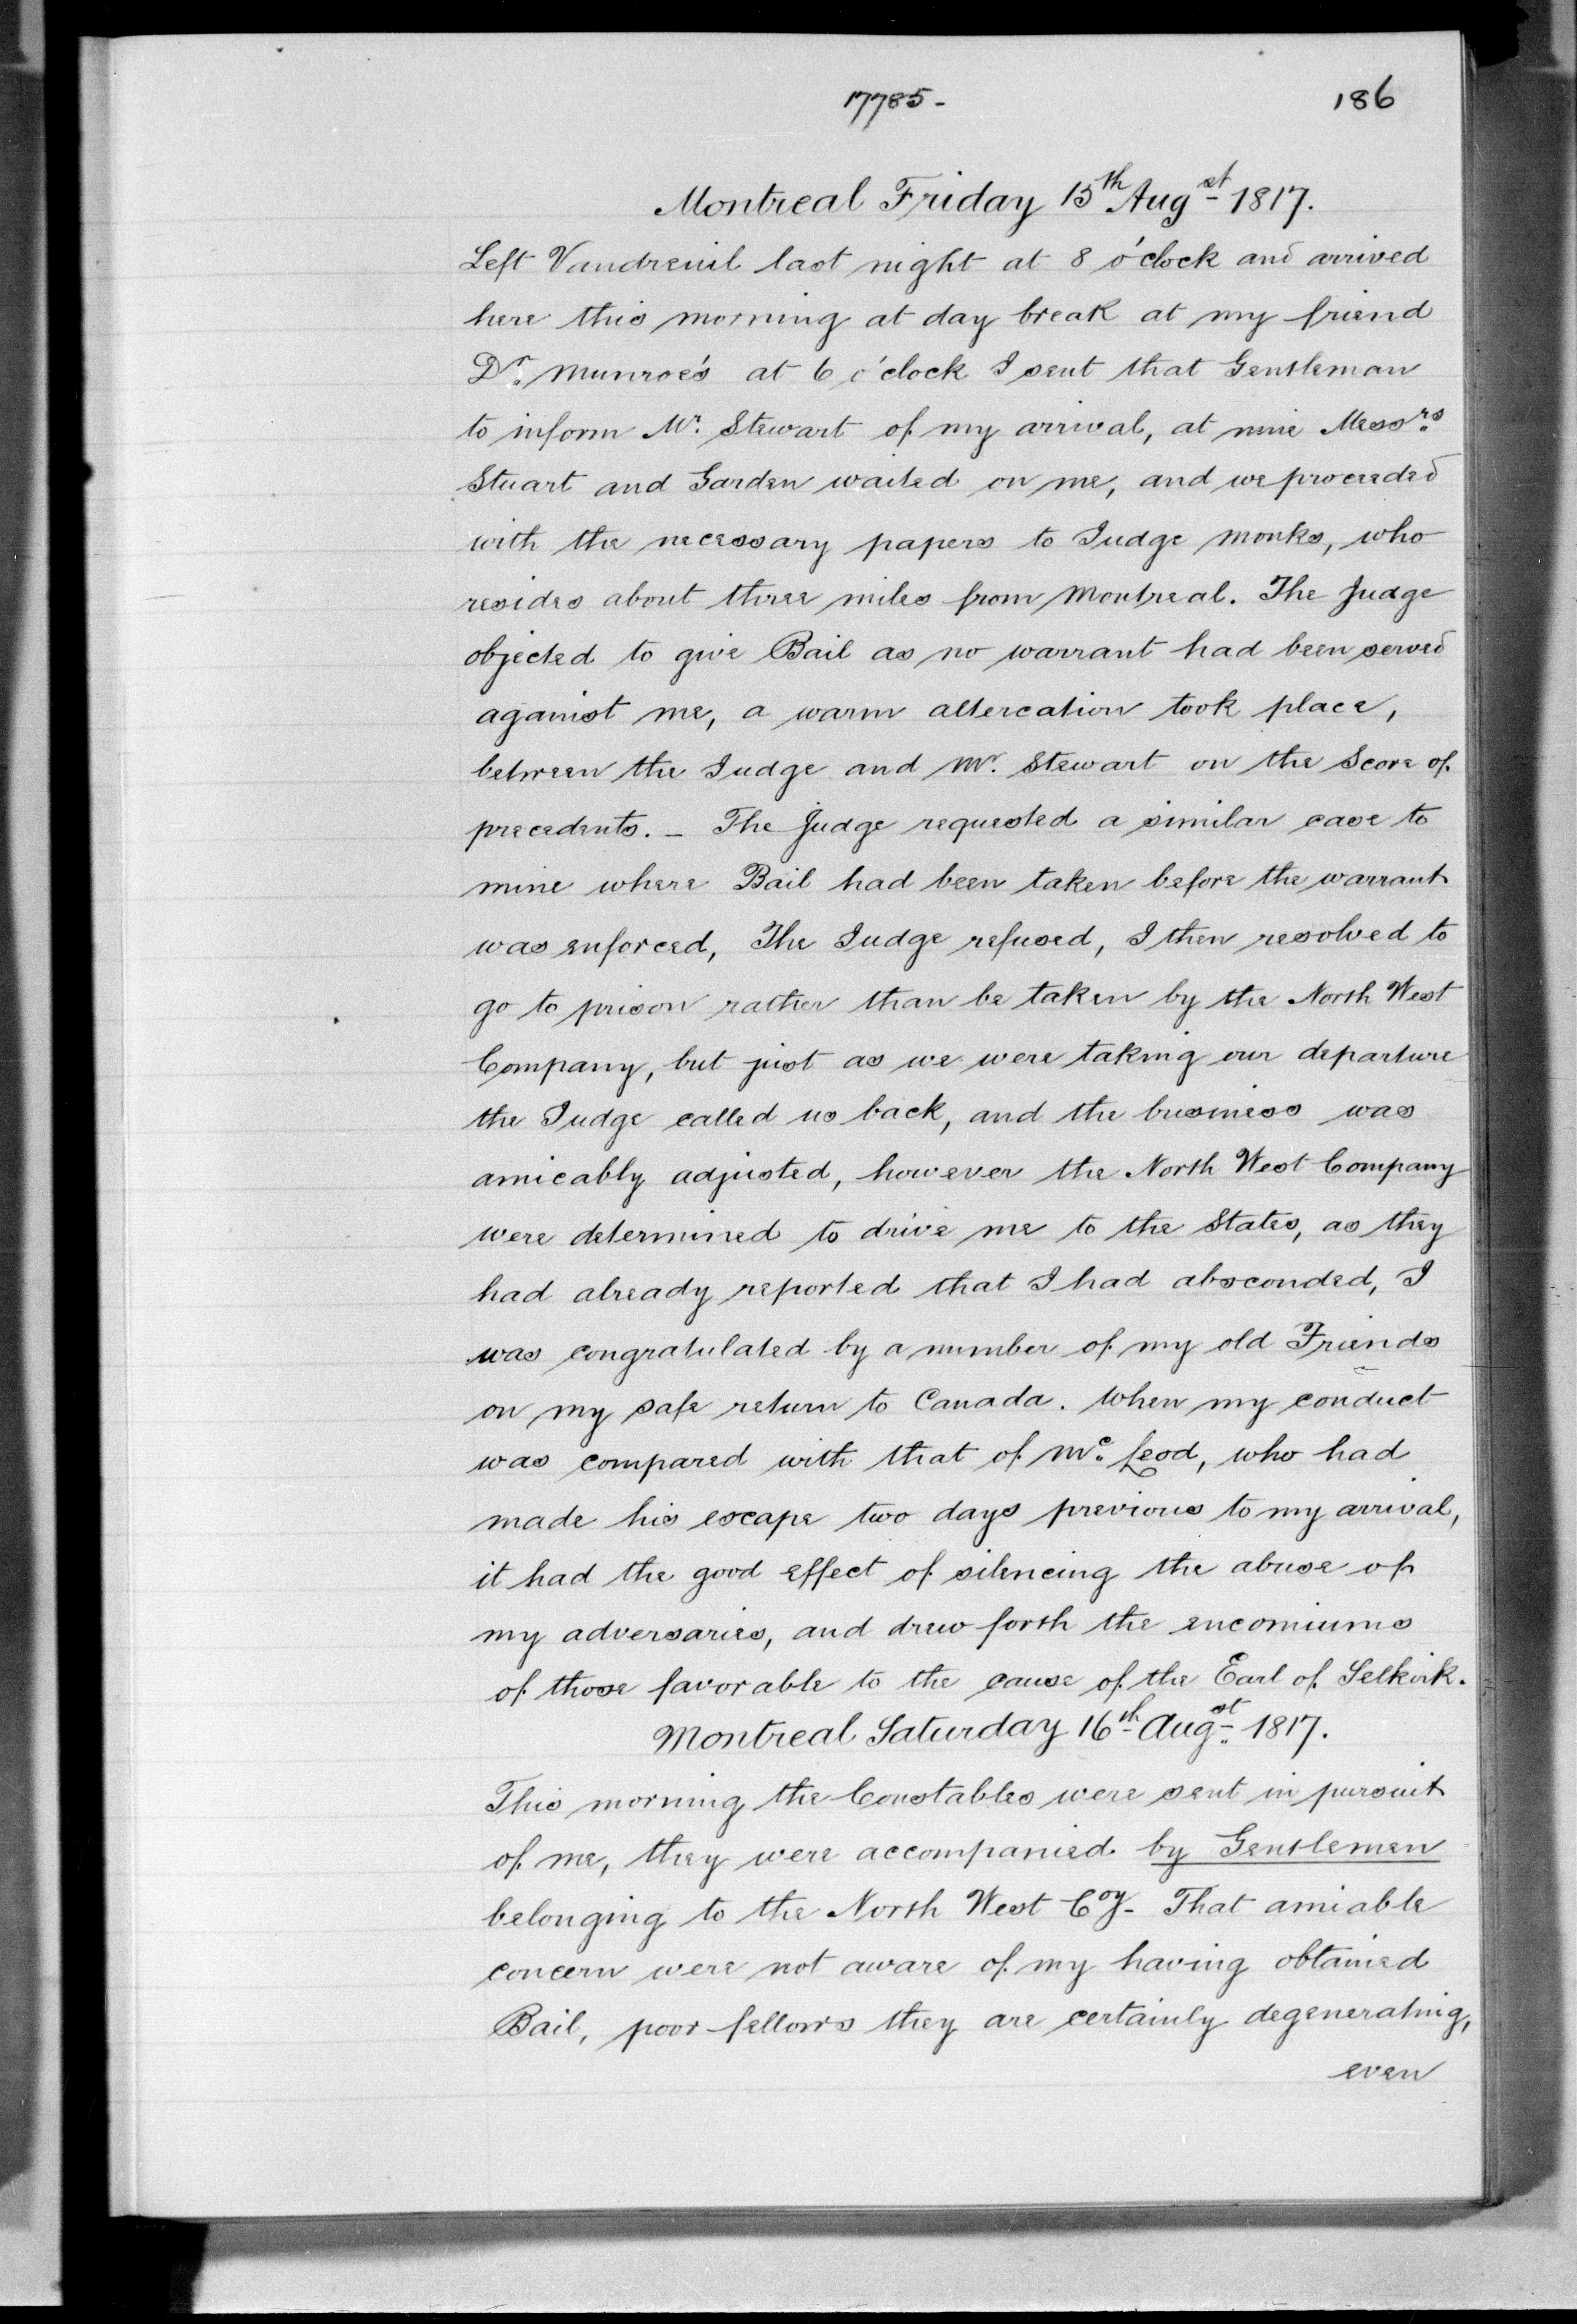 17785-
186
Montreal Friday 15th Augst 1817.
Left Vaudreuil last night at 8 o'clock and arrived
here this morning at day break at my friend
Dr. Munroe's at 6 o'clock I sent that Gentleman
to inform Mr. Stewart of my arrival, at nine Messrs.
Stuart and Garden waited on me, and we proceeded
with the necessary papers to Judge Monks, who
resides about three miles from Montreal. The Judge
objected to give Bail as no warrant had been served
against me, a warm altercation took place,
between the Judge and Mr. Stewart on the Score of
precedents. - The Judge requested a similar case to
mine where Bail had been taken before the warrant
was enforced, The Judge refused, I then resolved to
go to prison rather than be taken by the North West
Company, but just as we were taking our departure
the Judge called us back, and the business was
amicably adjusted, however the North West Company
were determined to drive me to the States, as they
had already reported that I had absconded, I
was congratulated by a number of my old Friends
on my safe return to Canada. When my conduct
was compared with that of Mc. Leod, who had
made his escape two days previous to my arrival,
it had the good effect of silencing the abuse of
my adversaries, and drew forth the encomiums
of those favorable to the cause of the Earl of Selkirk.
Montreal Saturday 16th Augst. 1817.
This morning the Constables were sent in pursuit
of me, they were accompanied by Gentlemen
belonging to the North West Coy- That amiable
concern were not aware of my having obtained
Bail, poor fellows they are certainly degenerating,
even